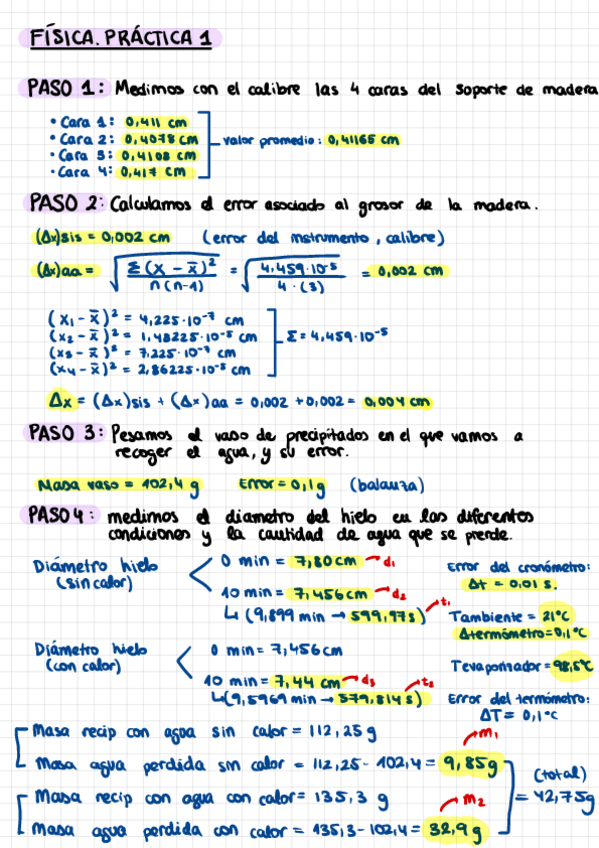 FÍSICA. PRÁCTICA 1
PASO 1: Medimos con el calibre las 4 caras del soporte de madera
• Cara 1: 0,411 cm
• Cara 2: 0,4078 cm
• Cara 3: 0,4108 cm
• Cara 4: 0,417 cm
valor promedio: 0,41165 cm
PASO 2: Calculamos el error asociado al grosor de la madera.
(Δx)sis = 0,002 cm (error del instrumento, calibre)
(Δx)aa = √(Σ(x - x̄)² / n(n-1)) = √(4,459·10⁻⁵ / 4·(3)) = 0,002 cm
(x₁ - x̄)² = 4,225·10⁻⁷ cm
(x₂ - x̄)² = 1,48225·10⁻⁵ cm
(x₃ - x̄)² = 7,225·10⁻⁷ cm
(x₄ - x̄)² = 2,86225·10⁻⁵ cm
Σ = 4,459·10⁻⁵
Δx = (Δx)sis + (Δx)aa = 0,002 + 0,002 = 0,004 cm
PASO 3: Pesamos el vaso de precipitados en el que vamos a
recoger el agua, y su error.
Masa vaso = 102,4 g Error = 0,1 g (balanza)
PASO 4: medimos el diametro del hielo en las diferentes
condiciones y la cantidad de agua que se pierde.
Diámetro hielo
(sin calor)
0 min = 7,80 cm → d₁
10 min = 7,456 cm → d₂
↳ (9,899 min → 599,97 s) → t₁
Error del cronómetro:
Δt = 0,01 s.
Tambiente = 21°C
Δtermómetro = 0,1°C
Diámetro hielo
(con calor)
0 min = 7,456 cm
10 min = 7,44 cm → d₃
↳ (9,5969 min → 579,814 s) → t₂
Tevaporizador = 98,5°C
Error del termómetro:
ΔT = 0,1°C
Masa recip con agua sin calor = 112,25 g
Masa agua perdida sin calor = 112,25 - 102,4 = 9,85 g → m₁
Masa recip con agua con calor = 135,3 g
Masa agua perdida con calor = 135,3 - 102,4 = 32,9 g → m₂
(total)
= 42,75 g